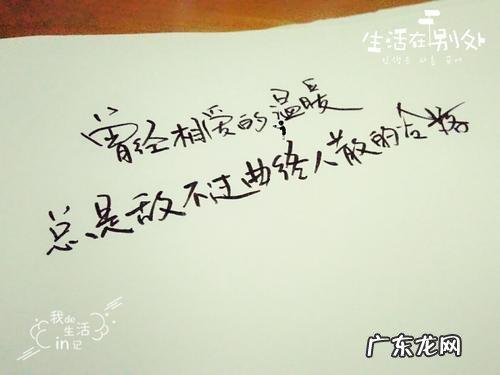 生活在别处
曾经相爱的温暖
总是敌不过曲终人散的
我de
生活
in记
广东龙网